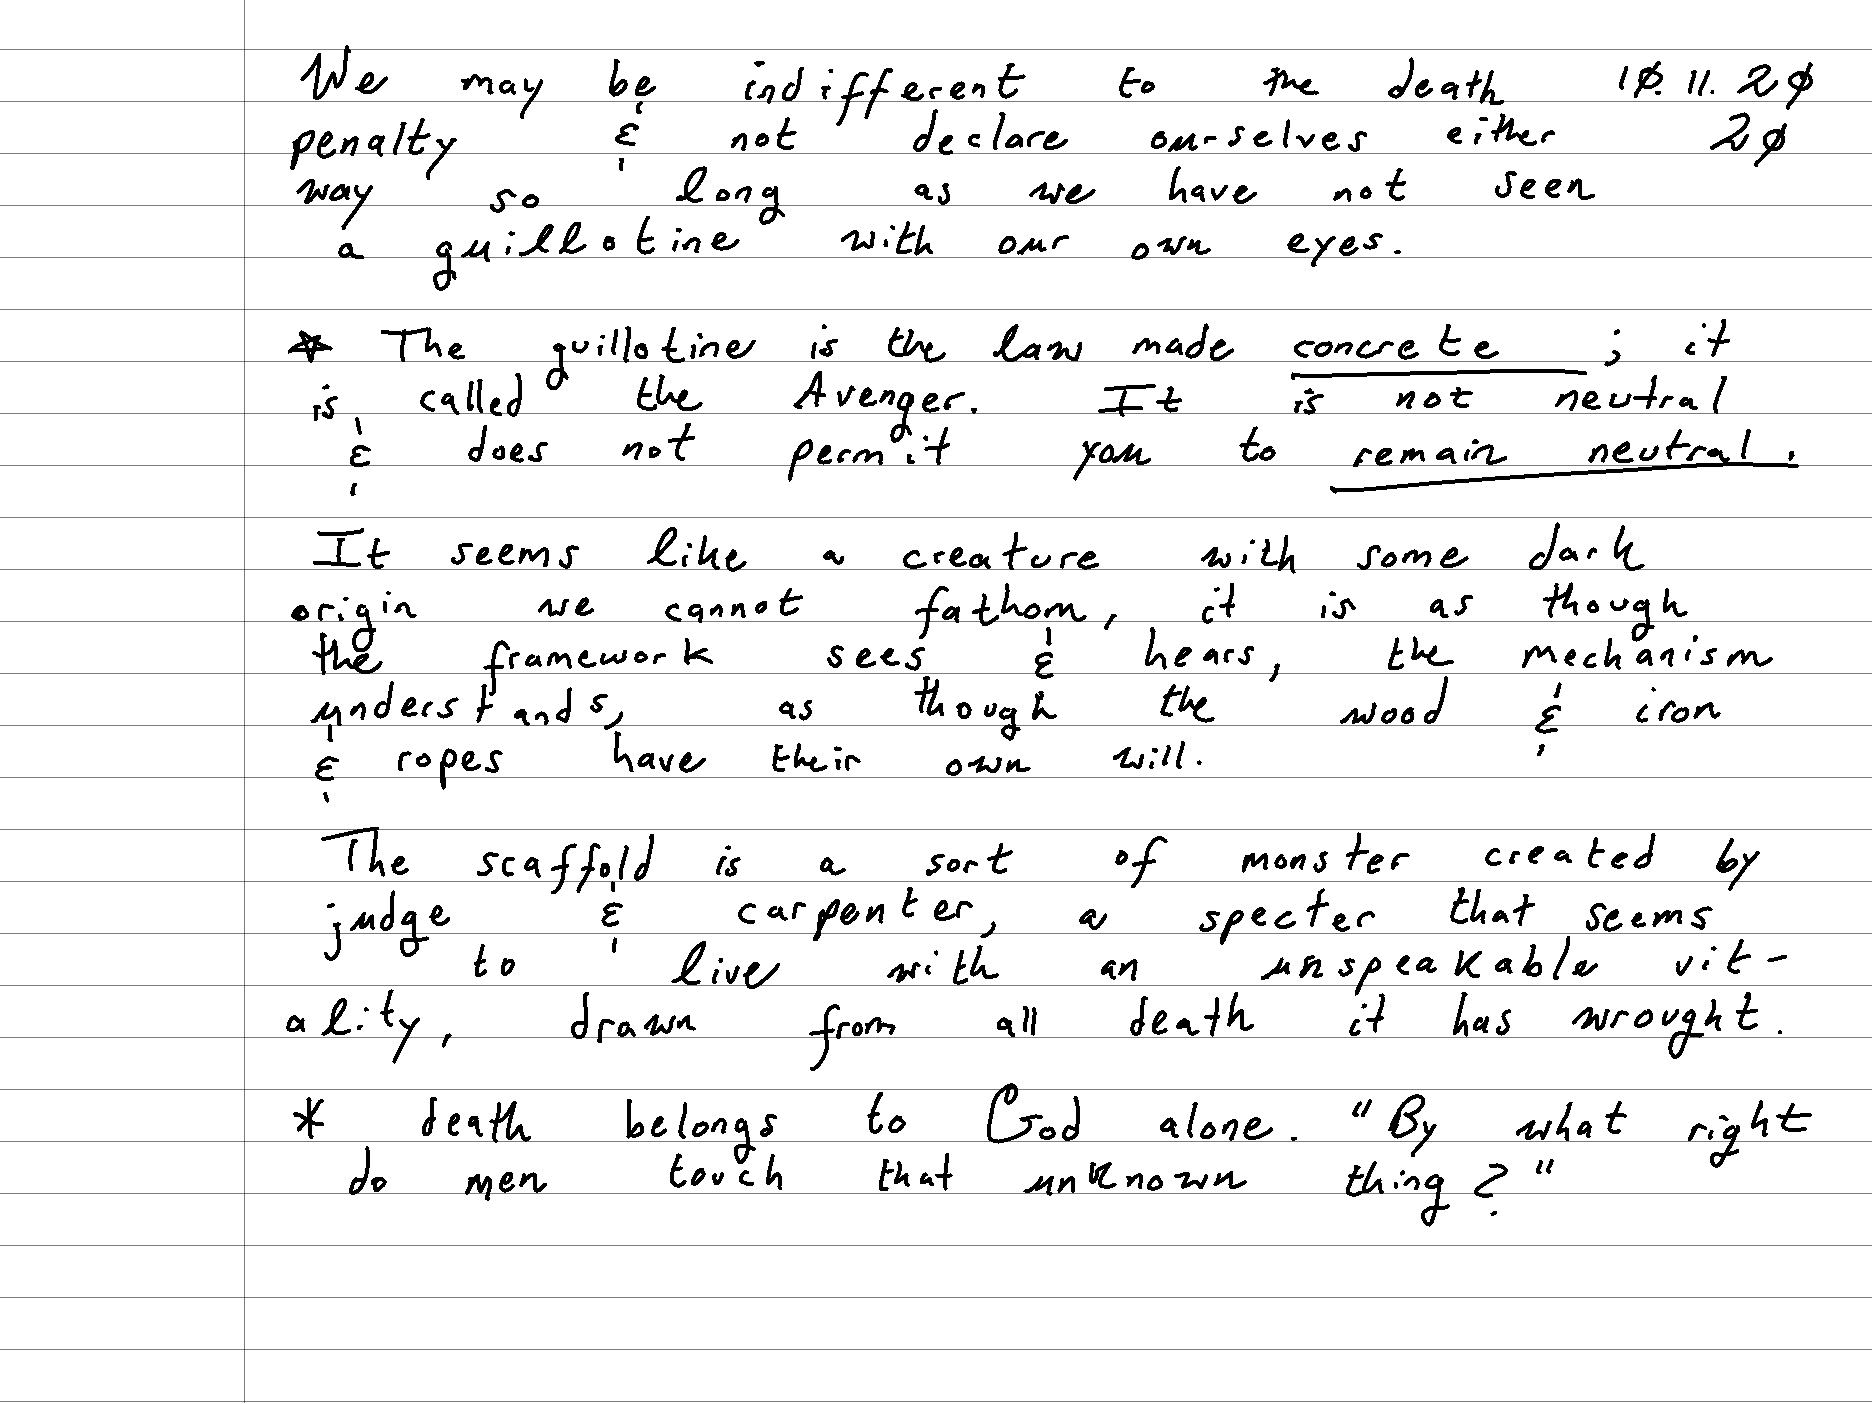 We may be indifferent to the death 10.11.20
penalty & not declare ourselves either 20
way so long as we have not seen
a guillotine with our own eyes.
* The guillotine is the law made concrete ; it
is called the Avenger. It is not neutral
& does not permit you to remain neutral.
It seems like a creature with some dark
origin we cannot fathom, it is as though
the framework sees & hears, the mechanism
understands, as though the wood & iron
& ropes have their own will.
The scaffold is a sort of monster created by
judge & carpenter, a specter that seems
to live with an unspeakable vit-
ality, drawn from all death it has wrought.
* death belongs to God alone. "By what right
do men touch that unknown thing?"